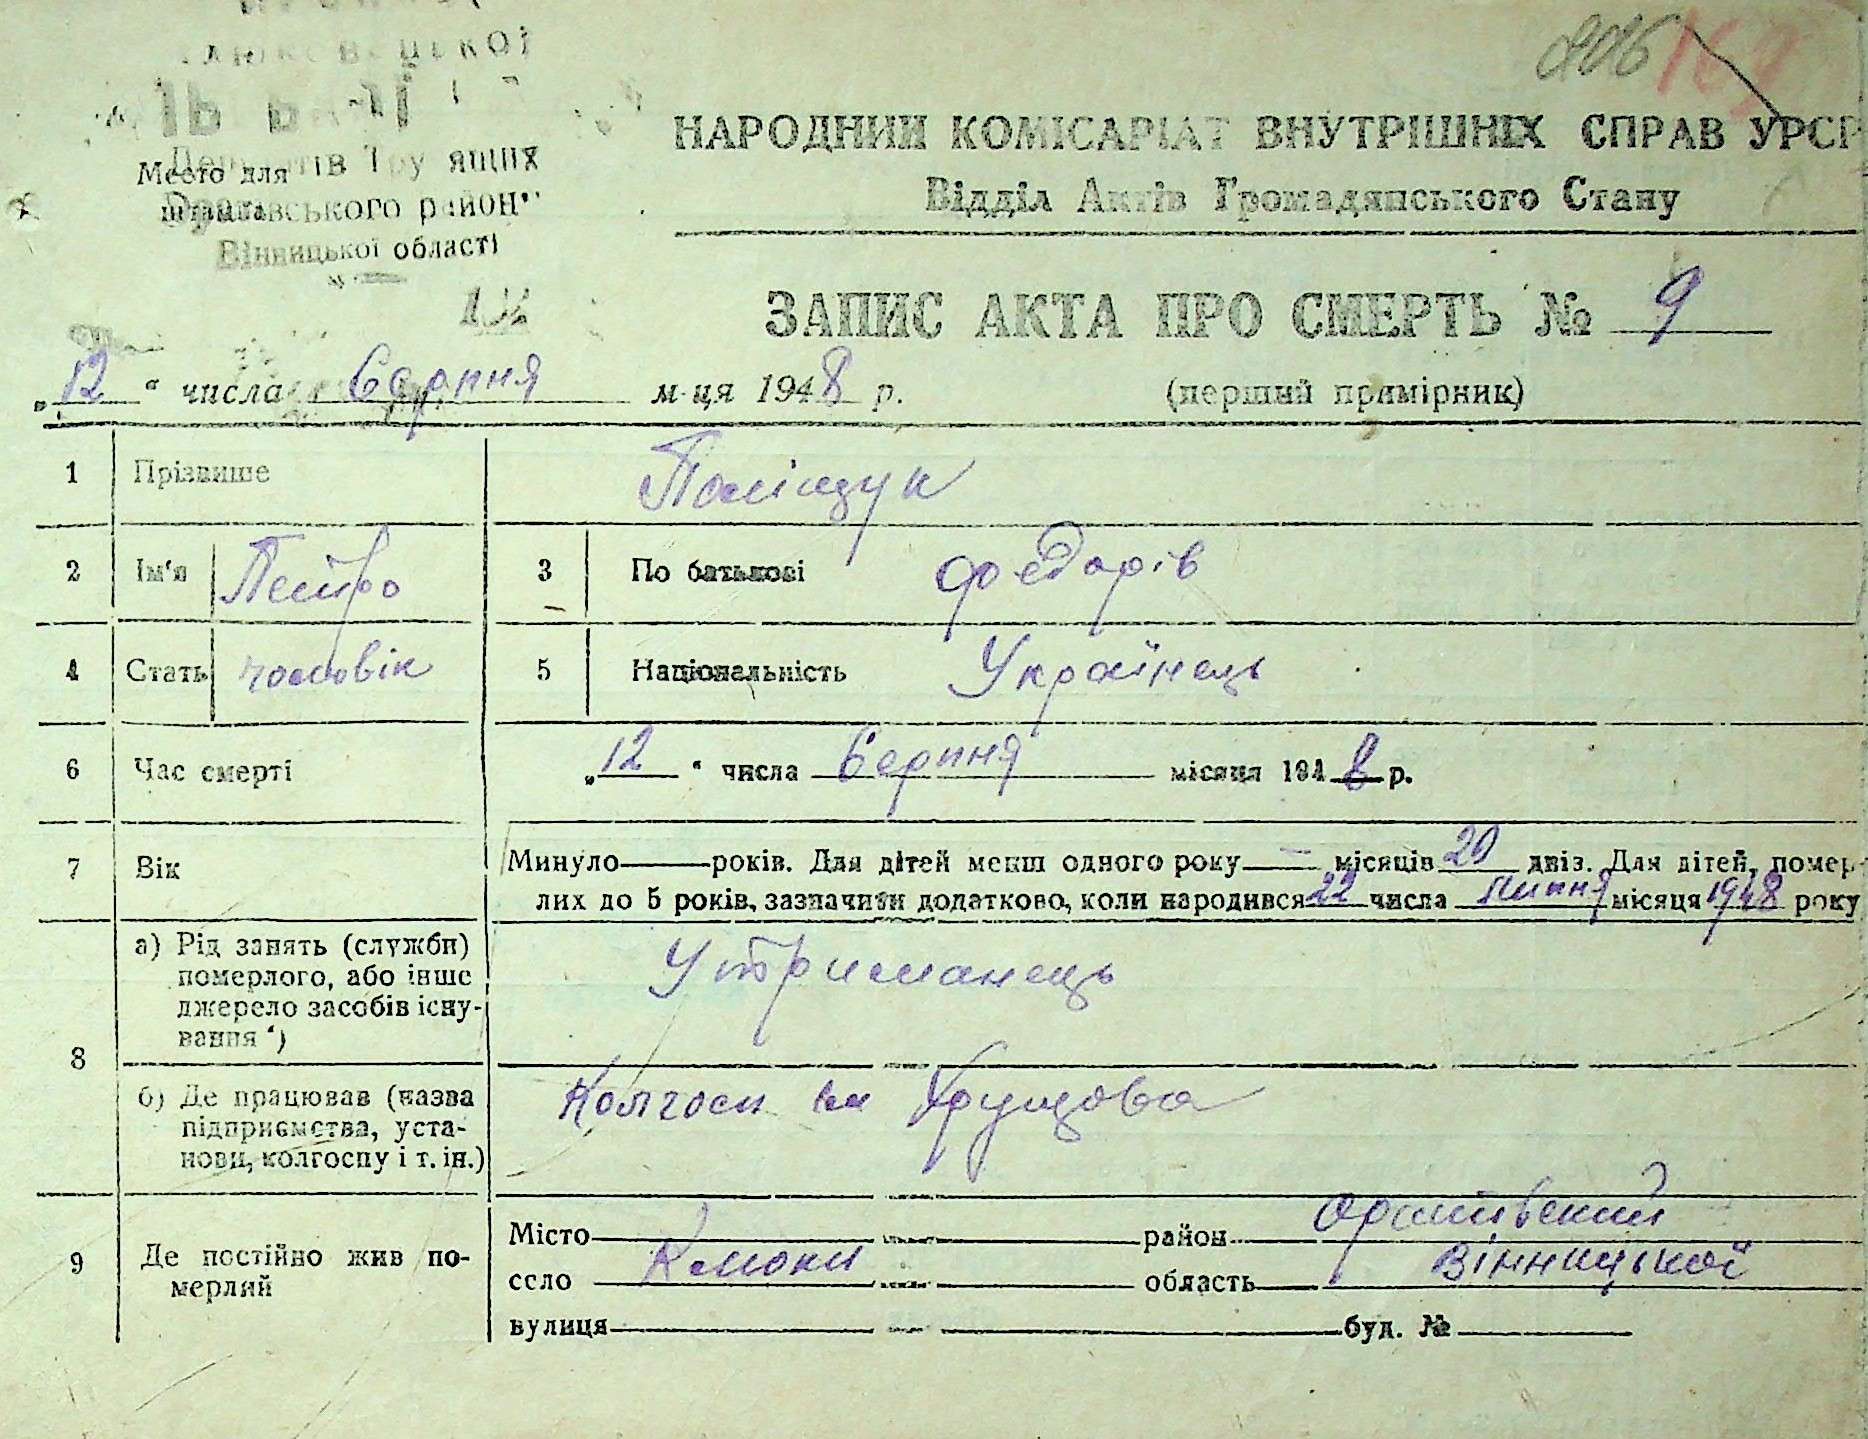 206 169
НАРОДНИЙ КОМІСАРІАТ ВНУТРІШНІХ СПРАВ УРСР
Відділ Актів Громадянського Стану
Место для
штампа
району
Вінницької області
ЗАПИС АКТА ПРО СМЕРТЬ № 9
„12“ числа Серпня м-ця 1948 р. (перший примірник)
1 Прізвище Поліщук
2 Ім'я Петро 3 По батькові Федорів
4 Стать чоловік 5 Національність Українець
6 Час смерті „12“ числа Серпня місяця 1948 р.
7 Вік Минуло — років. Для дітей менш одного року — місяців 20 двіз. Для дітей, помер-
лих до 5 років, зазначити додатково, коли народився 22 числа Липня місяця 1948 року
8 а) Рід занять (служби) померлого, або інше джерело засобів існу-вання *) Утриманець
б) Де працював (назва підприємства, уста-нови, колгоспу і т. ін.) Колгосп ім Хрущова
9 Де постійно жив по-мерлий Місто район Оратівський
село Клюки область Вінницької
вулиця буд. №